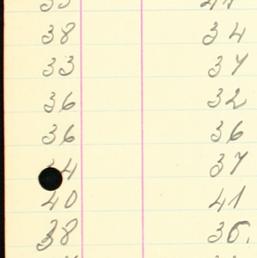 38 34
33 37
36 32
36 36
37
40 41
38 36.